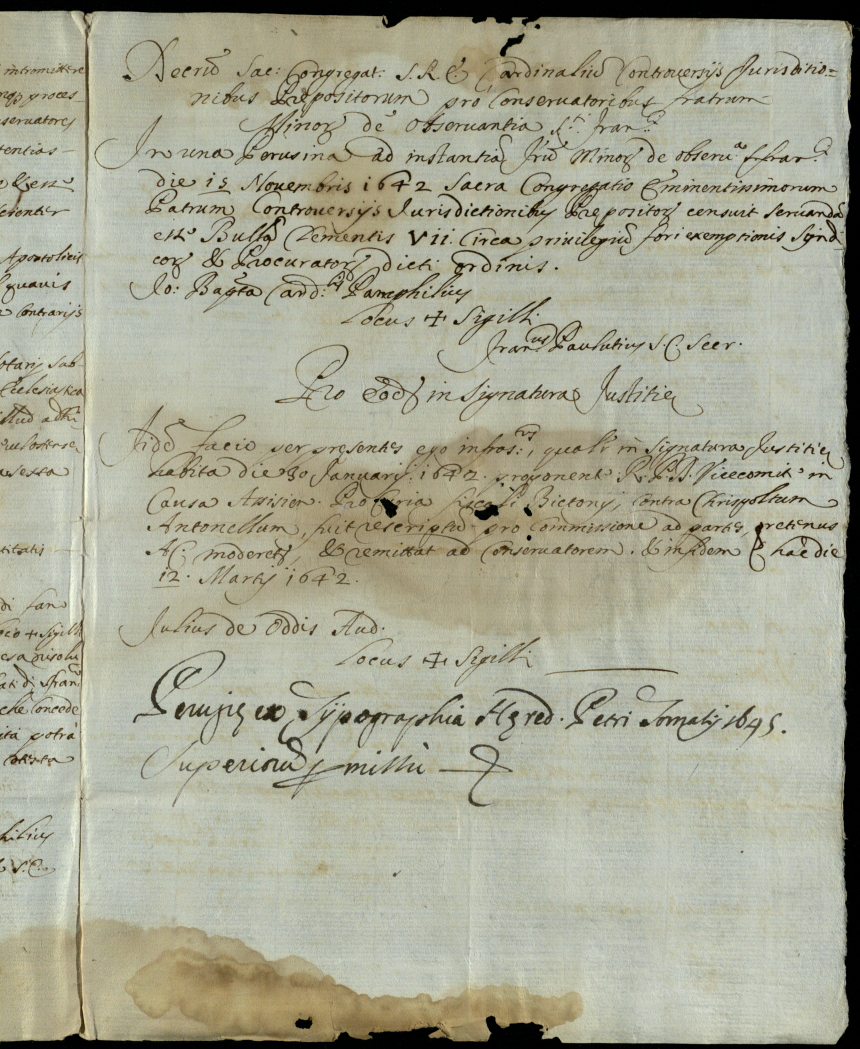 intromittere
proces-
servatores
tentias-
ferenter
Apostolicis
quavis
Contrarijs
notarij sub
Ecclesiastica
ac sexta
di san
loco + Sigilli
che concede
ità potrà
philius
S. C.
Decretũ Sac: Congregat: S. R. E. Cardinaliũ Controversijs Jurisdictio=
nibus Prepositorum pro Conservatoribus fratrum
Minoꝝ de Observantia S.ti Fran.ci
In una Perusina ad instantiã frũ Minoꝝ de obseru.a S. Fran.ci
die 15 Novembris 1642 Sacra Congregatio Eminentissimorum
Patrum Controversijs Jurisdictionibus Prepositoꝝ censuit servandã
esse Bullã Clementis VII. circa privilegiũ fori exemptionis Syndi
coꝝ & Procuratoꝝ dicti ordinis.
Jo: Bapta Card: Pamphilius
Locus + Sigilli
Fran.cus Paulutius S. C. Secr.
Pro Eodẽ in Signatura Justitiæ
Fidẽ facio per presentes ego infrãs.tus, quali in Signatura Justitiæ
habita die 30 Januarij 1642. proponente R. P. D. Vicecomite in
Causa Assisien. Pro Curia fiscali Bictonij, contra Chrispoltum
Antonellum, fuit rescriptũ pro commissione ad partes, pretenus
AC. moderetꝝ & remittat ad Conservatorem. & in fidem hac die
12. Martij 1642.
Julius de Oddis Aud.
Locus + Sigilli
Perusiæ ex Typographia Hæred. Petri Tomasij 1645.
Superiorũ pmissu